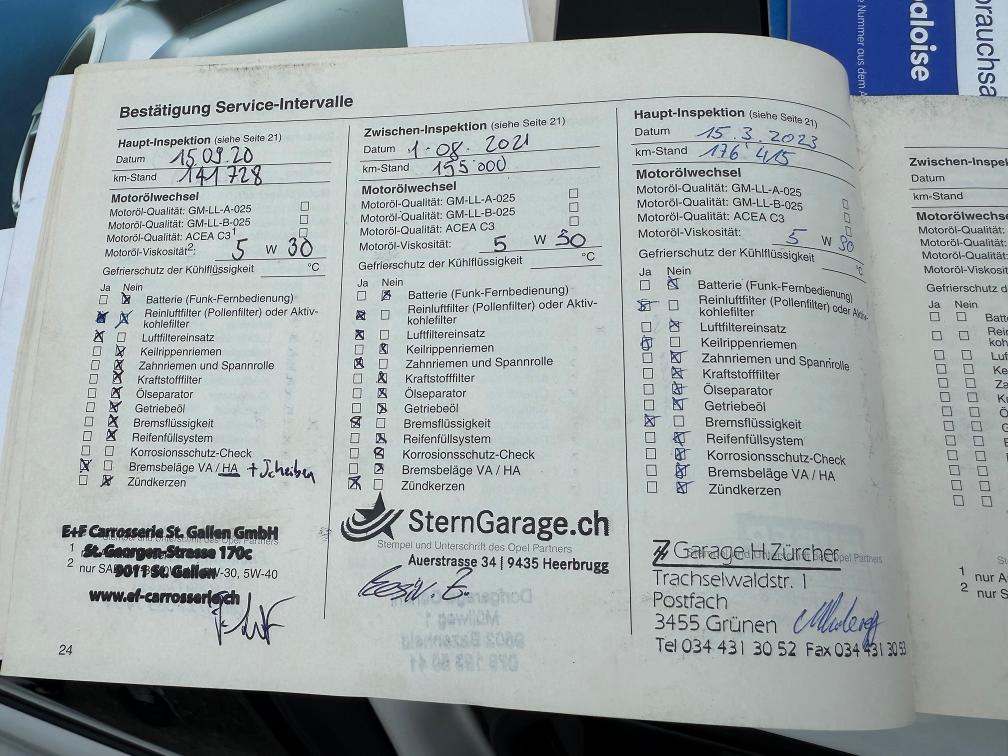 Bestätigung Service-Intervalle
Haupt-Inspektion (siehe Seite 21)
Datum 15.09.20
km-Stand 141 728
Motorölwechsel
Motoröl-Qualität: GM-LL-A-025
Motoröl-Qualität: GM-LL-B-025
Motoröl-Qualität: ACEA C3¹
Motoröl-Viskosität²: 5 W 30
Gefrierschutz der Kühlflüssigkeit °C
Ja Nein
Batterie (Funk-Fernbedienung)
Reinluftfilter (Pollenfilter) oder Aktiv-
kohlefilter
Luftfiltereinsatz
Keilrippenriemen
Zahnriemen und Spannrolle
Kraftstofffilter
Ölseparator
Getriebeöl
Bremsflüssigkeit
Reifenfüllsystem
Korrosionsschutz-Check
Bremsbeläge VA / HA + Scheiben
Zündkerzen
E+F Carrosserie St. Gallen GmbH
St. Georgen-Strasse 170c
9011 St. Gallen
www.ef-carrosserie.ch
1
2 nur SA W-30, 5W-40
24
Zwischen-Inspektion (siehe Seite 21)
Datum 1.08.2021
km-Stand 155 000
Motorölwechsel
Motoröl-Qualität: GM-LL-A-025
Motoröl-Qualität: GM-LL-B-025
Motoröl-Qualität: ACEA C3
Motoröl-Viskosität: 5 W 30
Gefrierschutz der Kühlflüssigkeit °C
Ja Nein
Batterie (Funk-Fernbedienung)
Reinluftfilter (Pollenfilter) oder Aktiv-
kohlefilter
Luftfiltereinsatz
Keilrippenriemen
Zahnriemen und Spannrolle
Kraftstofffilter
Ölseparator
Getriebeöl
Bremsflüssigkeit
Reifenfüllsystem
Korrosionsschutz-Check
Bremsbeläge VA / HA
Zündkerzen
SternGarage.ch
Stempel und Unterschrift des Opel Partners
Auerstrasse 34 | 9435 Heerbrugg
Haupt-Inspektion (siehe Seite 21)
Datum 15.3.2023
km-Stand 176'415
Motorölwechsel
Motoröl-Qualität: GM-LL-A-025
Motoröl-Qualität: GM-LL-B-025
Motoröl-Qualität: ACEA C3
Motoröl-Viskosität: 5 W 30
Gefrierschutz der Kühlflüssigkeit °C
Ja Nein
Batterie (Funk-Fernbedienung)
Reinluftfilter (Pollenfilter) oder Aktiv-
kohlefilter
Luftfiltereinsatz
Keilrippenriemen
Zahnriemen und Spannrolle
Kraftstofffilter
Ölseparator
Getriebeöl
Bremsflüssigkeit
Reifenfüllsystem
Korrosionsschutz-Check
Bremsbeläge VA / HA
Zündkerzen
Garage H.Zürcher
Opel Partners
Trachselwaldstr. 1
Postfach
3455 Grünen
Tel 034 431 30 52 Fax 034 431 30 53
Zwischen-Inspek
Datum
km-Stand
Motorölwechsel
Motoröl-Qualität:
Motoröl-Qualität:
Motoröl-Qualität:
Motoröl-Viskosit
Gefrierschutz d
Ja Nein
Batt
Rein
koh
Luf
Ke
Za
Kr
1 nur A
2 nur S
aloise
e Nummer aus dem A
brauchsa